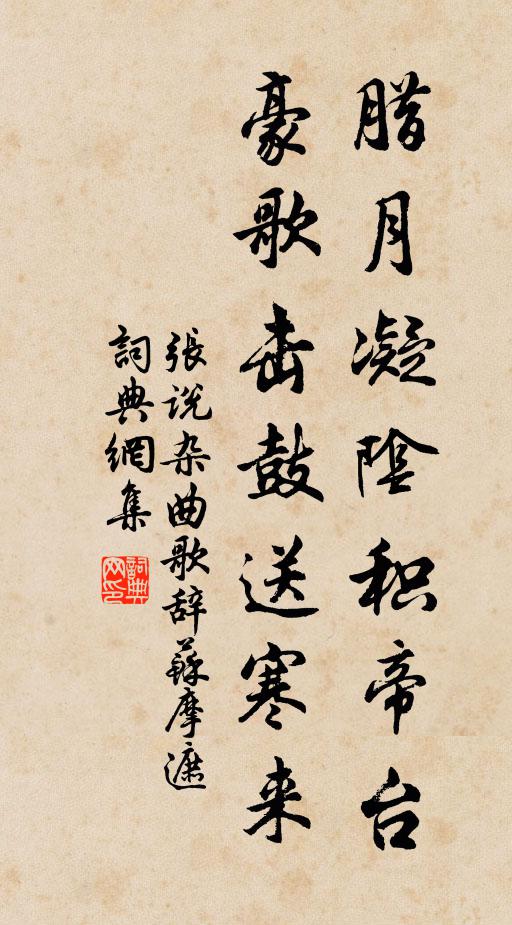 腊月凝陰积帝台
豪歌击鼓送寒来
張说杂曲歌辞蘇摩遮
詞典網集
詞典网印